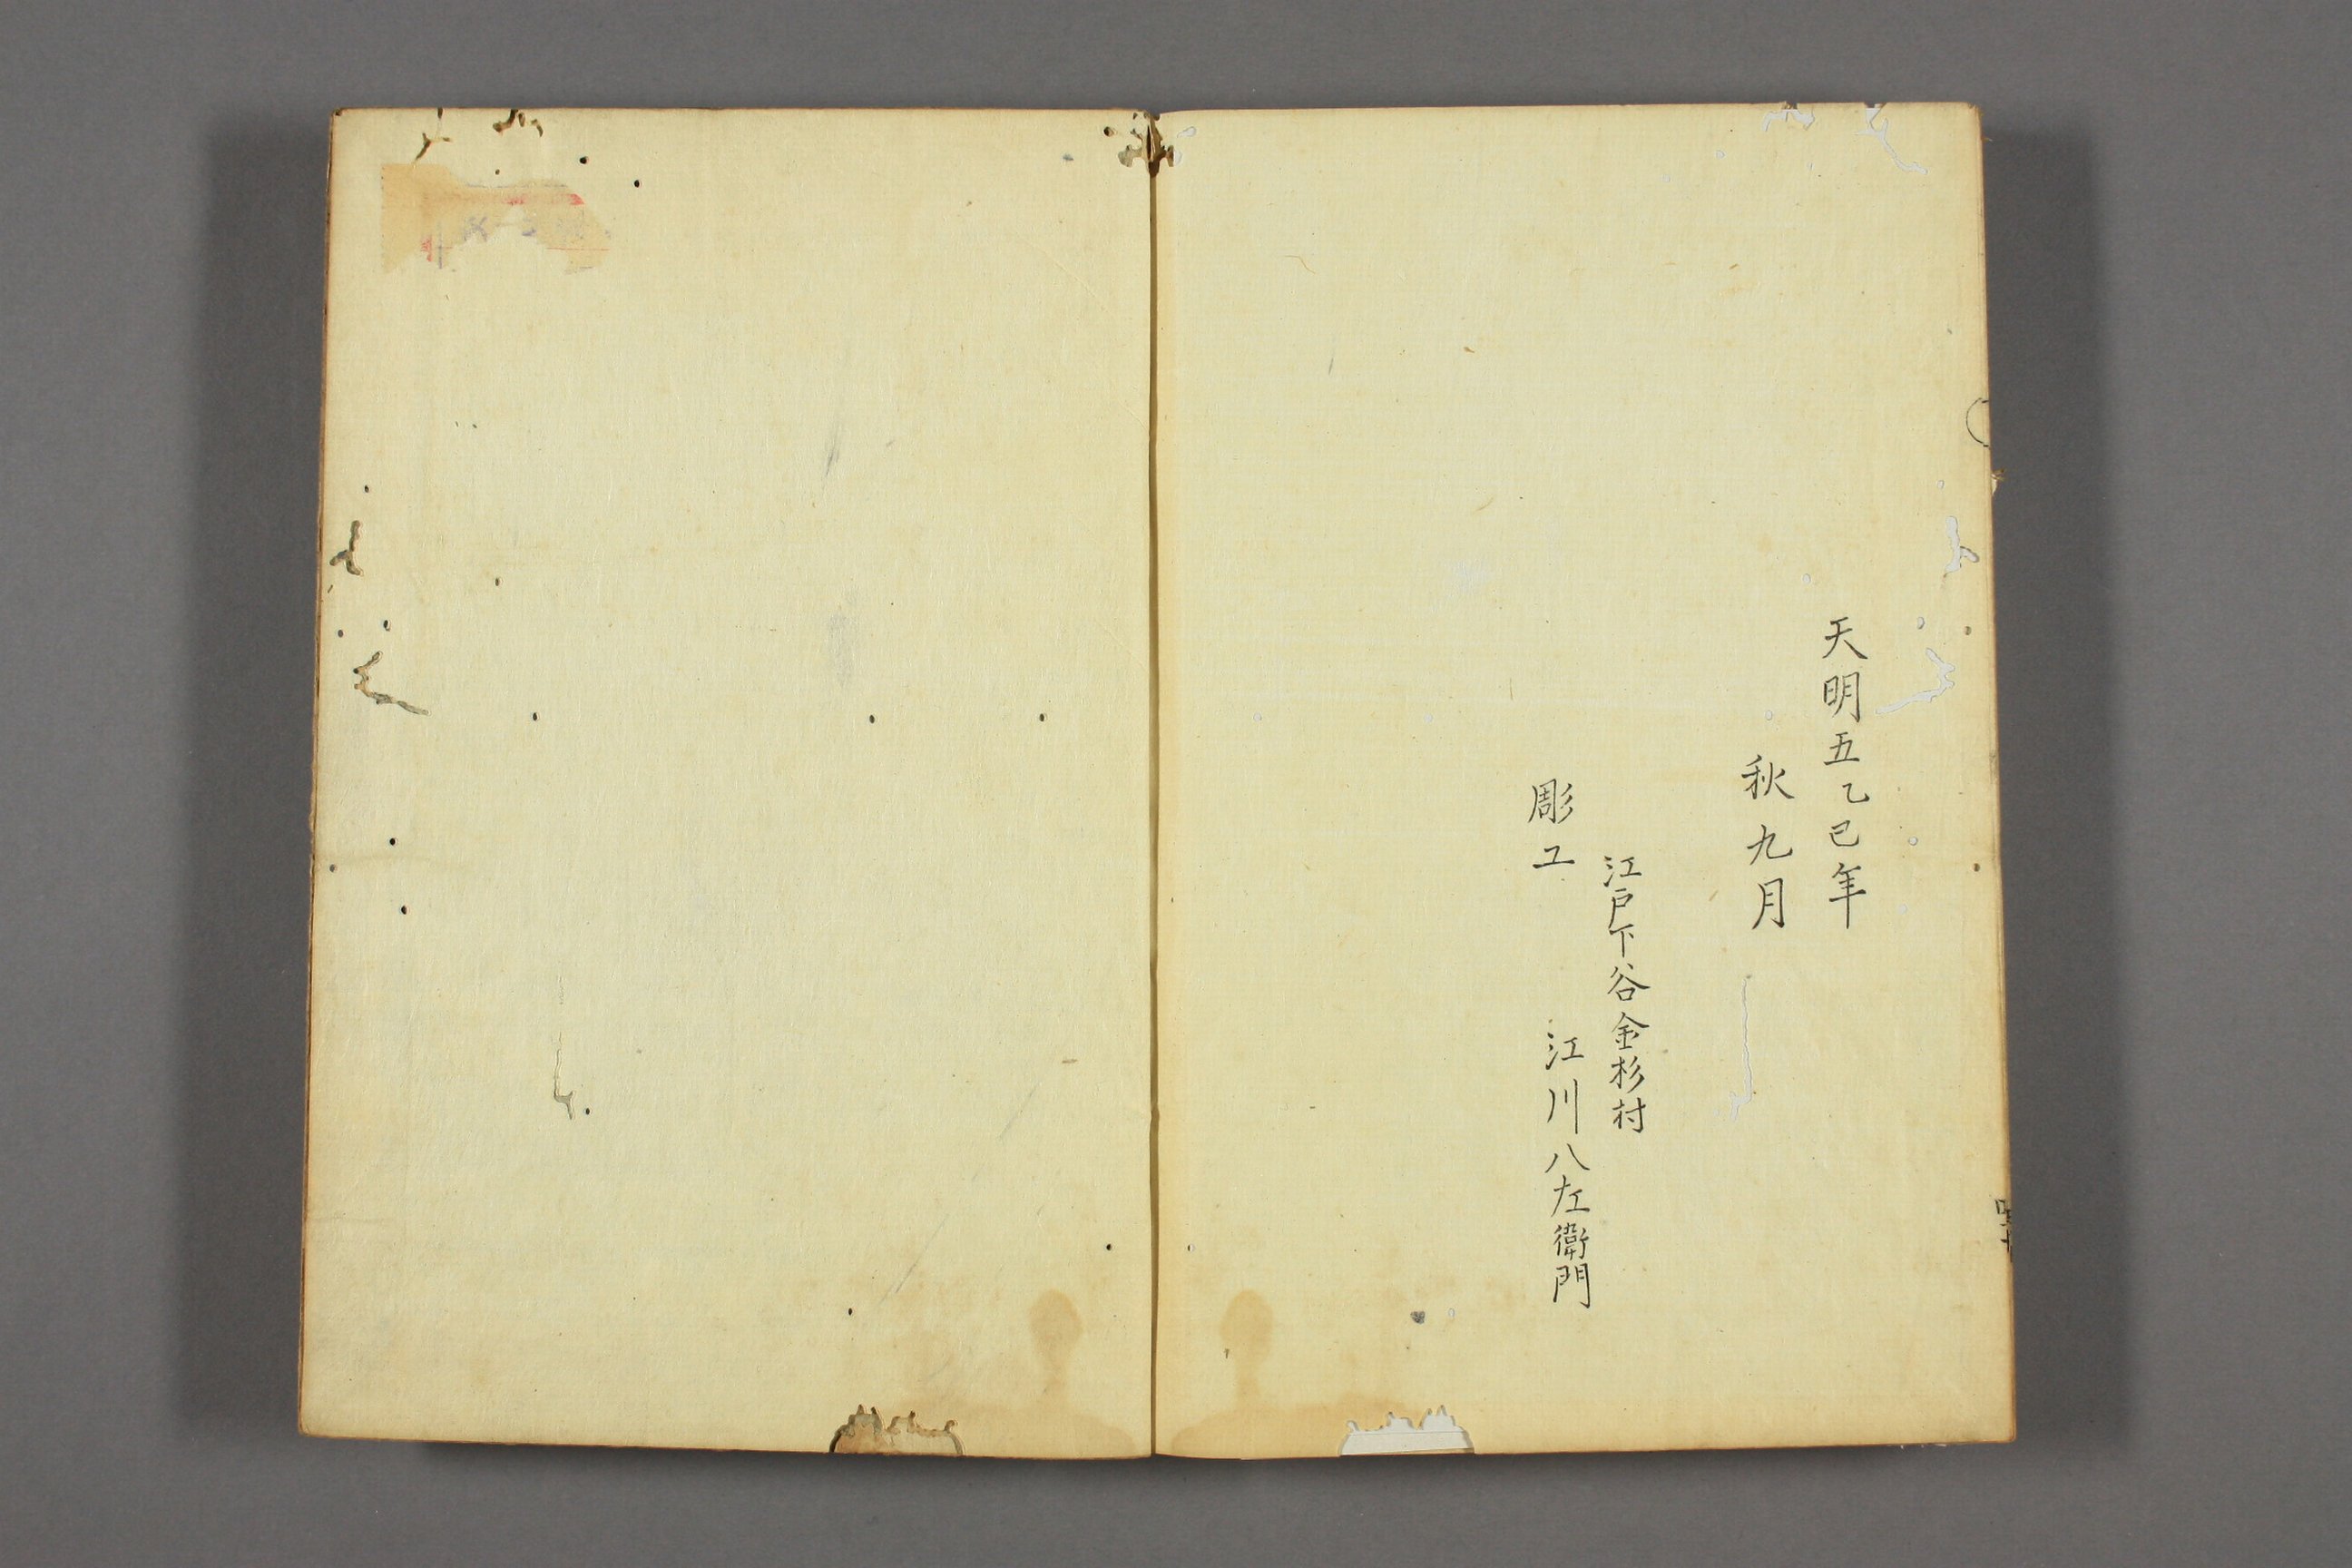 天明五乙巳年
秋九月
江戸下谷金杉村
彫工　江川八左衛門